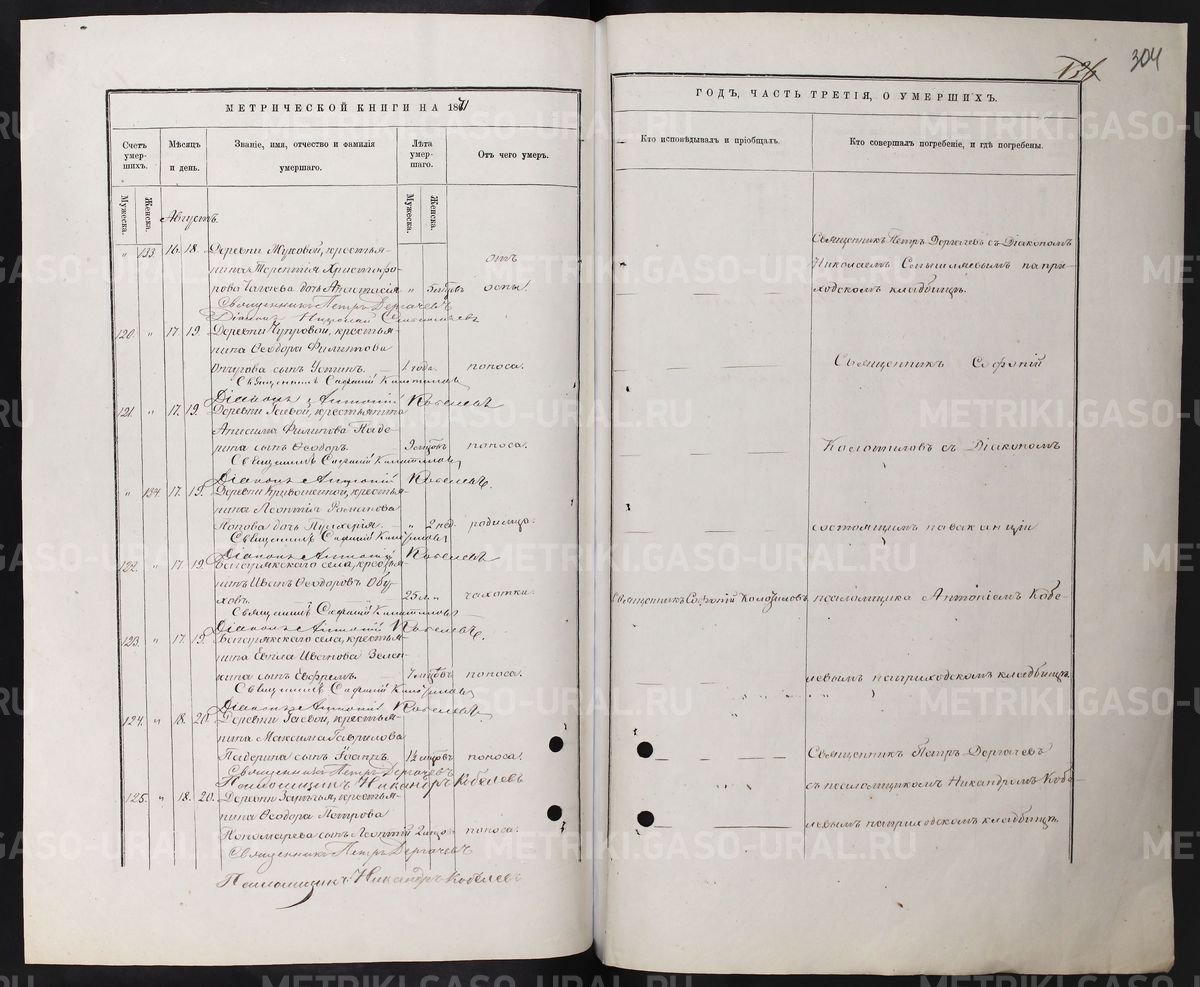 304
136
МЕТРИЧЕСКОЙ КНИГИ НА 1871
ГОДЪ, ЧАСТЬ ТРЕТІЯ, О УМЕРШИХЪ.
Счетъ умер-шихъ.
Мужеска.
Женска.
Мѣсяцъ и день.
Званіе, имя, отчество и фамилія умершаго.
Лѣта умер-шаго.
Мужеска.
Женска.
Отъ чего умеръ.
Кто исповѣдывалъ и пріобщалъ.
Кто совершалъ погребеніе, и гдѣ погребены.
Августъ.
" 133. 16. 18. Деревни Жуковой, крестья-
нина Терентія Христофо-
рова Чагаева дочь Анастасія " 5 мцовъ отъ оспы.
Священникъ Петръ Дергачевъ
Діаконъ Николай Смышляевъ
Священникъ Петръ Дергачевъ съ Діакономъ
Николаемъ Смышляевымъ на при-
ходскомъ кладбищѣ.
120. " 17. 19. Деревни Чупровой, крестья-
нина Ѳеодора Филиппова
сынъ Устинъ. 1 года. поноса.
Священникъ Софоній Колотиловъ
Діаконъ Антоній Кобелевъ
Священникъ Софоній
121. " 17. 19. Деревни Гаевой, крестьянина
Анисима Филипова Паде-
рина сынъ Ѳеодоръ. мцовъ поноса.
Священникъ Софоній Колотиловъ
Діаконъ Антоній Кобелевъ.
Колотиловъ съ Діакономъ
" 134. 17. 19. Деревни крестья-
нина Леонтія Романова
Попова дочь Пульхерія. " 2 нед. родимца.
Священникъ Софоній Колотиловъ
Діаконъ Антоній Кобелевъ
состоящимъ на вакансіи
122. " 17. 19. Багарякскаго села, крестья-
нинъ Иванъ Ѳеодоровъ Обу-
ховъ. 25 л. " чахотки.
Священникъ Софоній Колотиловъ
Діаконъ Антоній Кобелевъ.
Священникъ Софоній Колотиловъ
псаломщика Антоніемъ Кобе-
123. " 17. 19. Багарякскаго села, крестья-
нина Иванова Зелен-
кина сынъ Евфремъ. мцовъ поноса.
Священникъ Софоній Колотиловъ
Діаконъ Антоній Кобелевъ.
левымъ на приходскомъ кладбищѣ.
124. " 18. 20. Деревни Гаевой, крестья-
нина Максима Гаврилова
Падерина сынъ Іоаннъ. 1½ мцовъ поноса.
Священникъ Петръ Дергачевъ
Псаломщикъ Никандръ Кобелевъ
Священникъ Петръ Дергачевъ
съ псаломщикомъ Никандромъ Кобе-
125. " 18. 20. Деревни крестья-
нина Ѳеодора Петрова
Пономарева сынъ Леонтій 2 мцов поноса.
Священникъ Петръ Дергачевъ
Псаломщикъ Никандръ Кобелевъ
левымъ на приходскомъ кладбищѣ.
METRIKI.GASO-URAL.RU